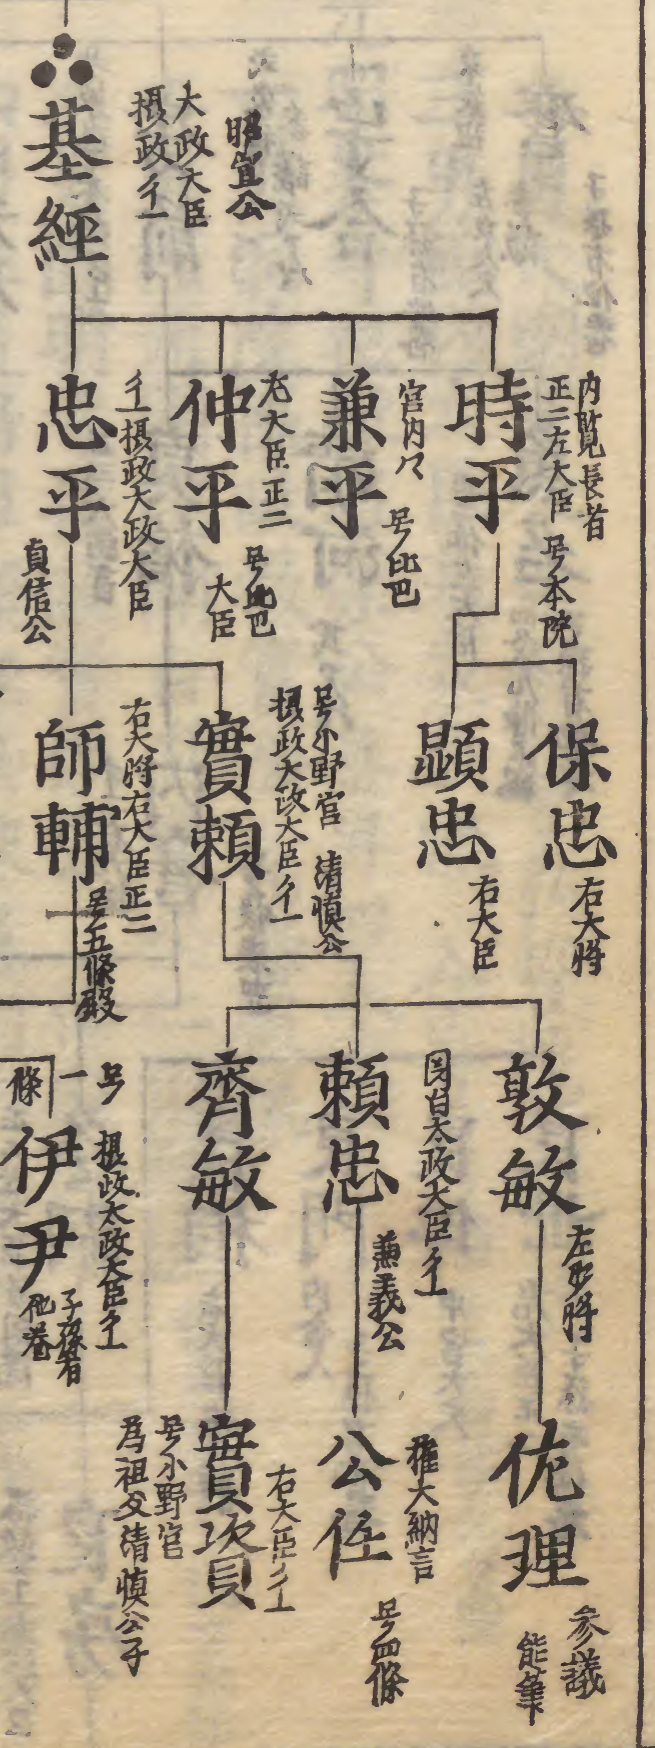 基經
昭宣公
大政大臣
摂政従一
時平
内覧長者
正二左大臣
号本院
兼平
宮内
号枇巴
仲平
左大臣正二
号枇巴
大臣
忠平
従一摂政大政大臣
貞信公
保忠
右大将
顕忠
右大臣
實頼
号小野宮 清慎公
摂政大政大臣従一
師輔
右大将右大臣正二
号五條殿
敦敏
左少将
頼忠
関白太政大臣従一
兼義公
齊敏
伊尹
号一條
摂政太政大臣従一
子孫有
他巻
佐理
参議
能筆
公任
権大納言
号四條
實資
右大臣従一
号小野宮
為祖父清慎公子